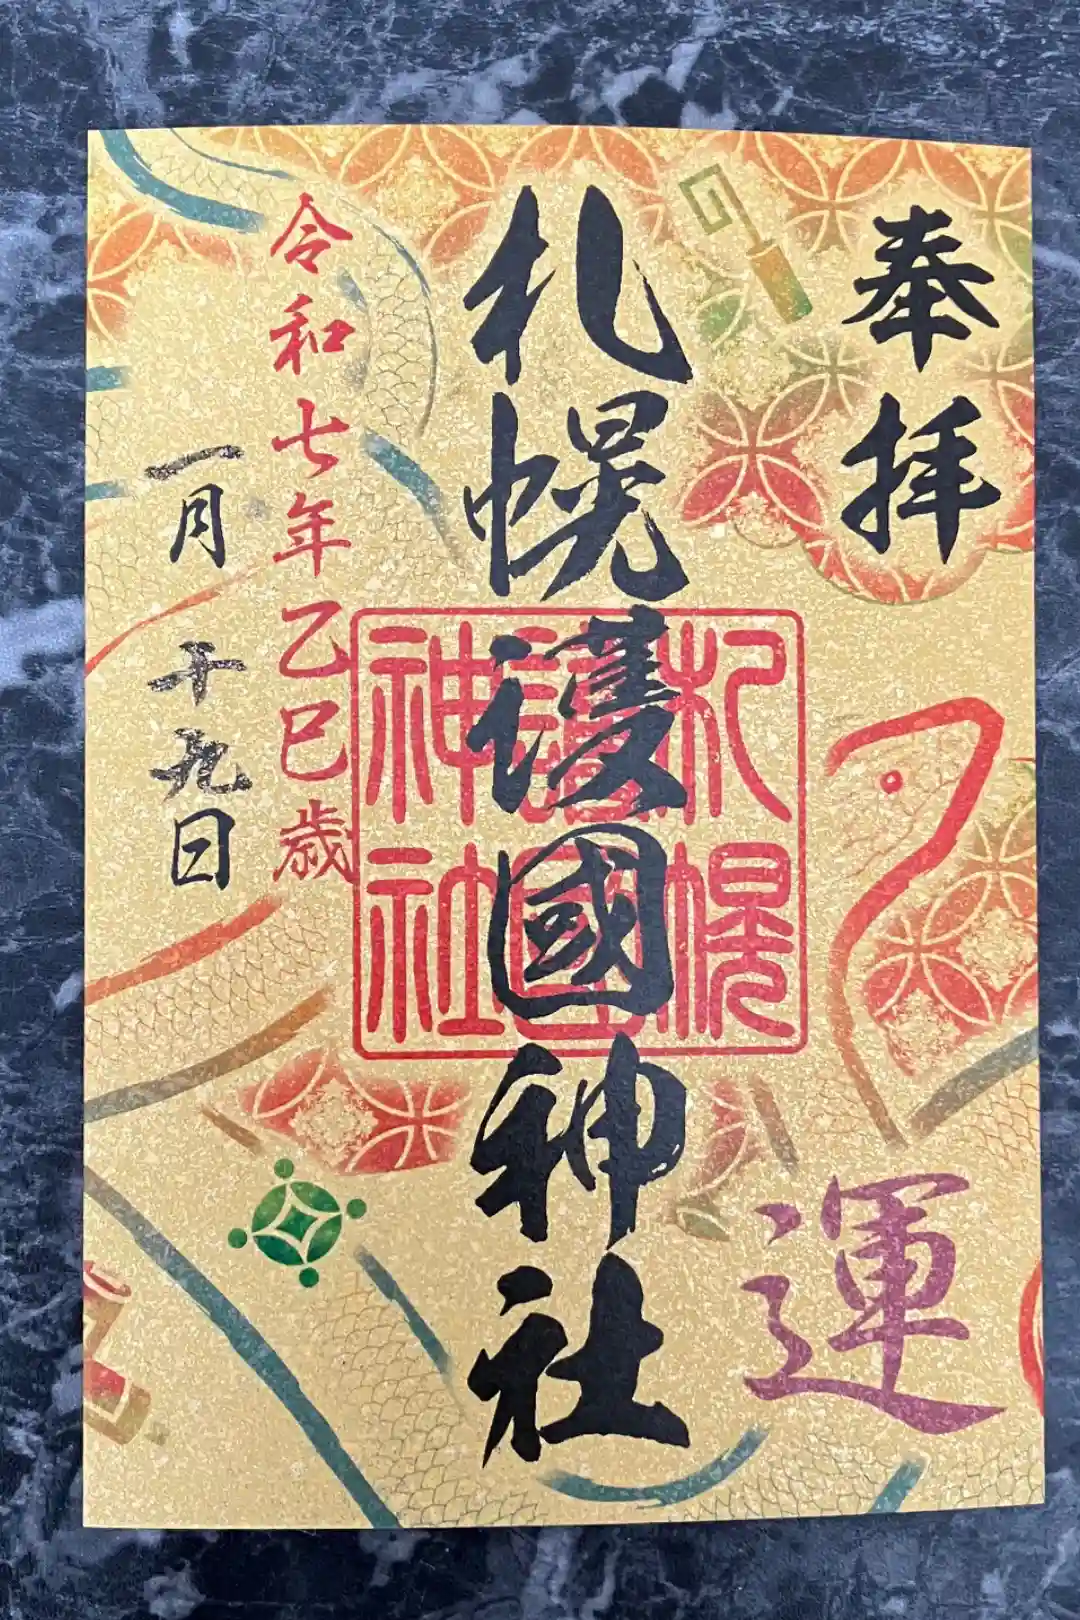 奉拝
運
札幌護國神社
札幌
護國
神社
令和七年乙巳歳
一月十九日